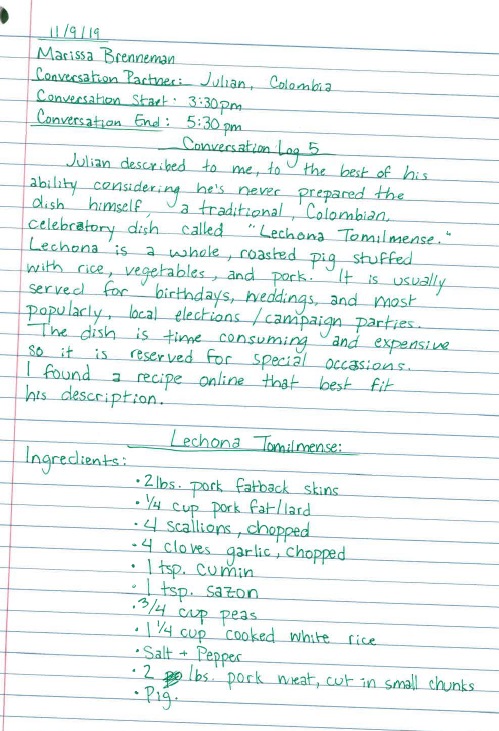 11/9/19
Marissa Brenneman
Conversation Partner: Julian, Colombia
Conversation Start: 3:30pm
Conversation End: 5:30pm
Conversation Log 5
Julian described to me, to the best of his
ability considering he's never prepared the
dish himself, a traditional, Colombian,
celebratory dish called "Lechona Tomilmense."
Lechona is a whole, roasted pig stuffed
with rice, vegetables, and pork. It is usually
served for birthdays, weddings, and most
popularly, local elections/campaign parties.
The dish is time consuming and expensive
so it is reserved for special occasions.
I found a recipe online that best fit
his description.
Lechona Tomilmense:
Ingredients:
• 2lbs. pork fatback skins
• 1/4 cup pork fat/lard
• 4 scallions, chopped
• 4 cloves garlic, chopped
• 1 tsp. cumin
• 1 tsp. sazon
• 3/4 cup peas
• 1 1/4 cup cooked white rice
• Salt + Pepper
• 2 lbs. pork meat, cut in small chunks
• Pig.